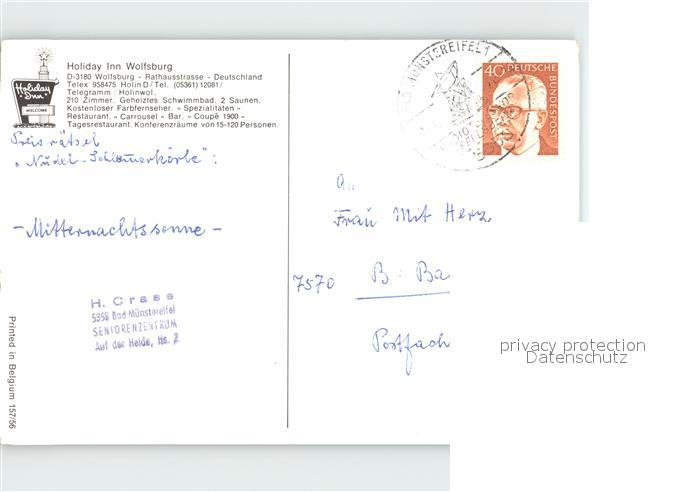 Holiday Inn
WELCOME
Holiday Inn Wolfsburg
D-3180 Wolfsburg - Rathausstrasse - Deutschland
Telex 958475 Holin D / Tel. (05361) 12081/
Telegramm : Holinwol.
210 Zimmer. Geheiztes Schwimmbad. 2 Saunen.
Kostenloser Farbfernseher. - Spezialitäten -
Restaurant. - Carrousel - Bar. - Coupé 1900 -
Tagesrestaurant. Konferenzräume von 15-120 Personen.
Preisrätsel
"Nudel-Schlemmerkörbe":
- Mitternachtssonne -
H. Crass
5358 Bad Münstereifel
SENIORENZENTRUM
Auf der Heide, Hs. 2
Printed in Belgium 157/56
MÜNSTEREIFEL 1
40 DEUTSCHE
BUNDESPOST
An
Frau Mit Herz
7570 B. Ba
Postfach
privacy protection
Datenschutz